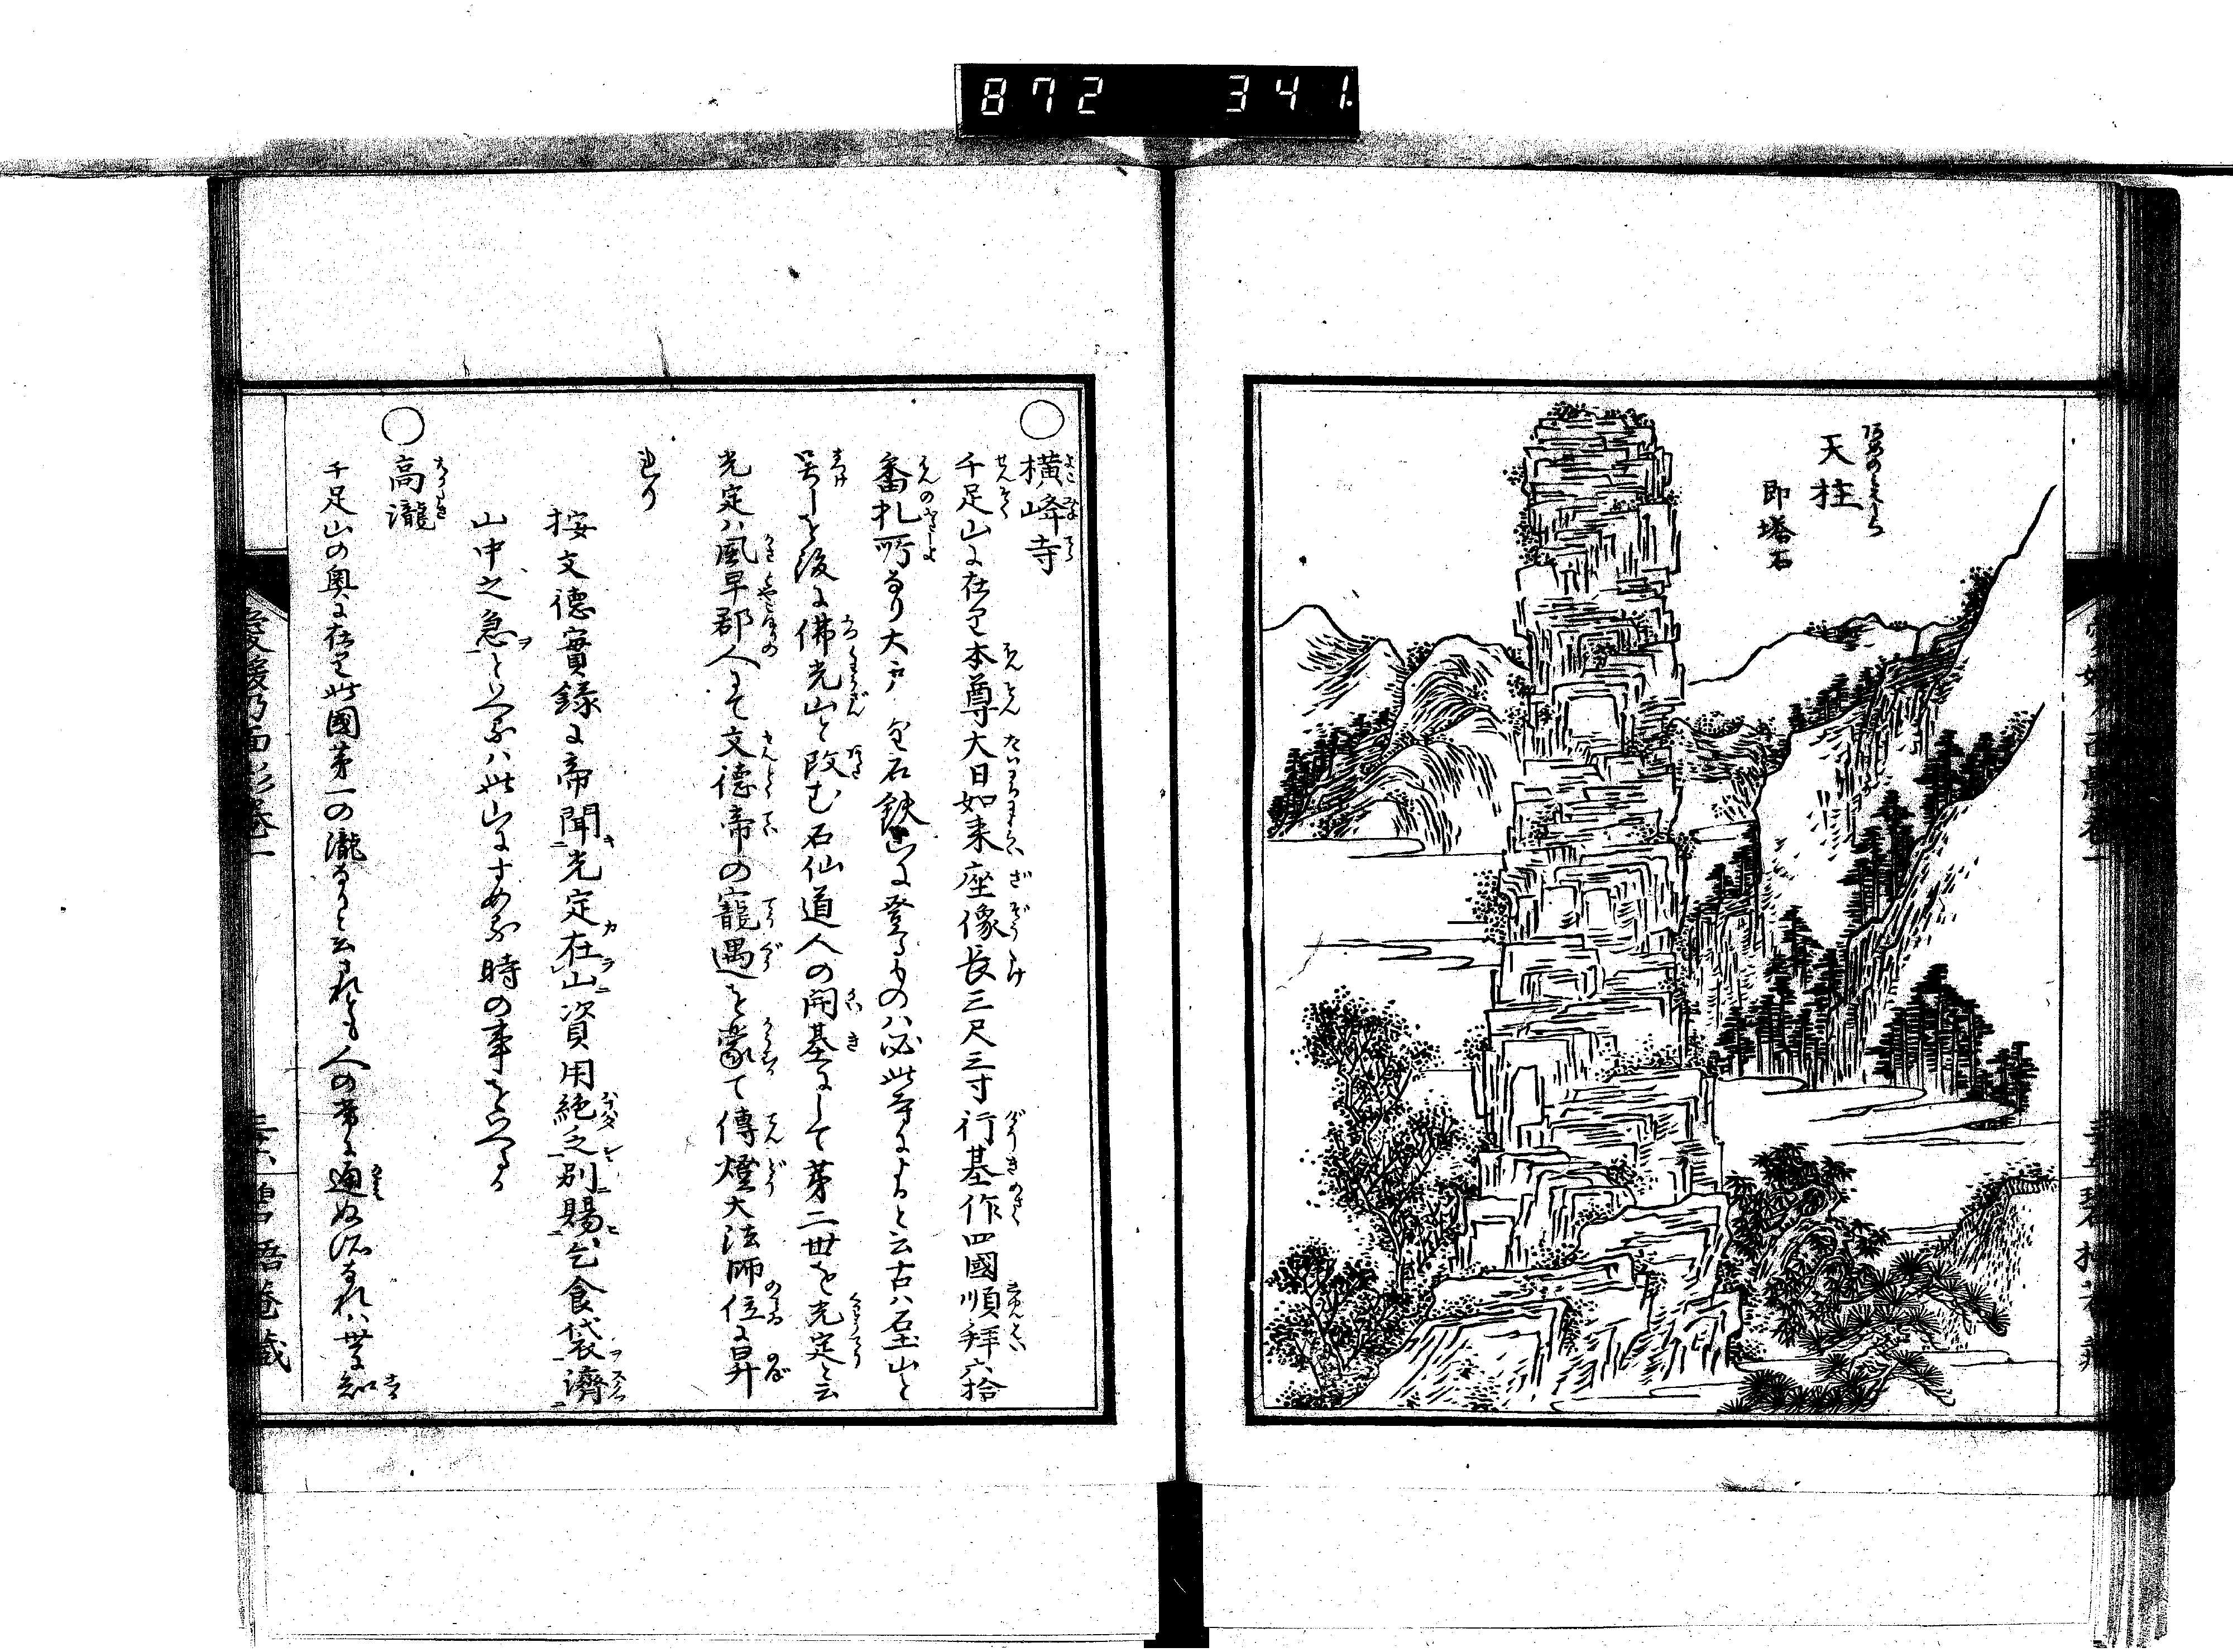 872 341.
天柱
即塔石
横峰寺
よこみね てら
千足山に在て本尊大日如来座像長三尺三寸行基作四國順拜六拾
番札所なり大戸より石鉄山に登るものハ必此寺によると云古ハ石土山と
号しを後に佛光山と改む石仙道人の開基にして第二世を光定と云
光定ハ風早郡人にて文徳帝の寵遇を蒙て傳燈大法師位に昇
れり
按文徳實録に帝聞光定在山資用絶乏別賜乞食袋濟
山中之急といへるハ此山にすめる時の事をいへる
高瀧
千足山の奥に在て此國第一の瀧なりと云されとも人の常に通ぬ所なれハ世に知
愛媛乃面影巻一